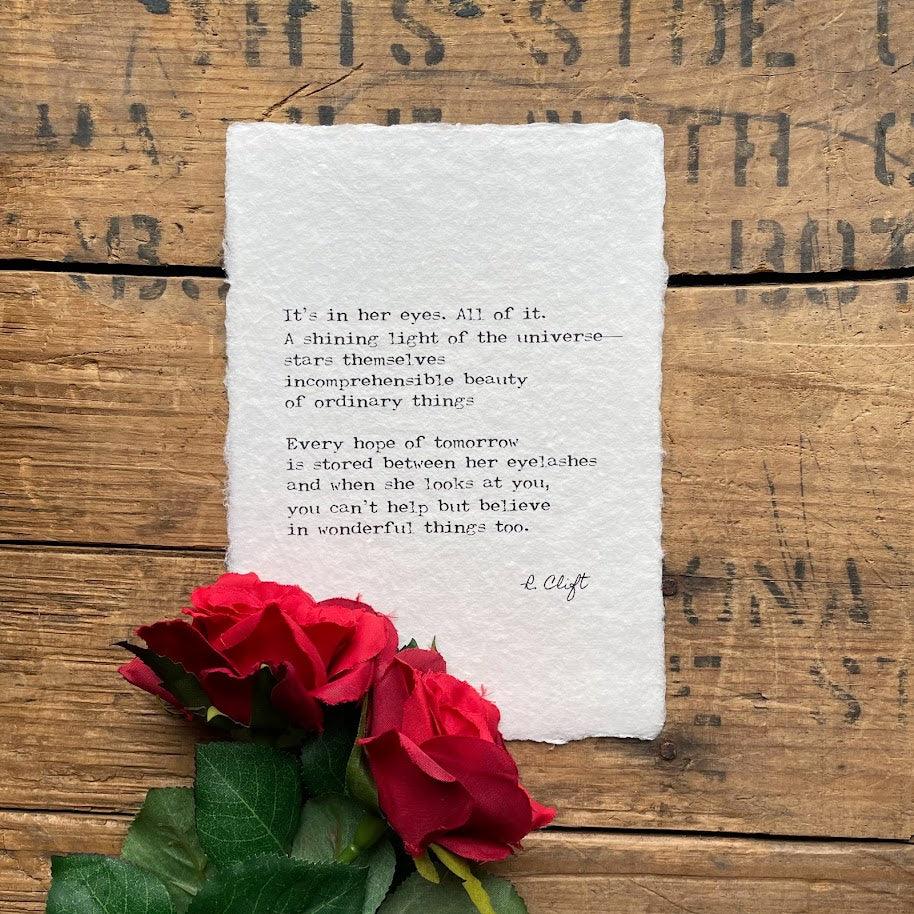 It's in her eyes. All of it.
A shining light of the universe—
stars themselves
incomprehensible beauty
of ordinary things
Every hope of tomorrow
is stored between her eyelashes
and when she looks at you,
you can't help but believe
in wonderful things too.
R. Clift